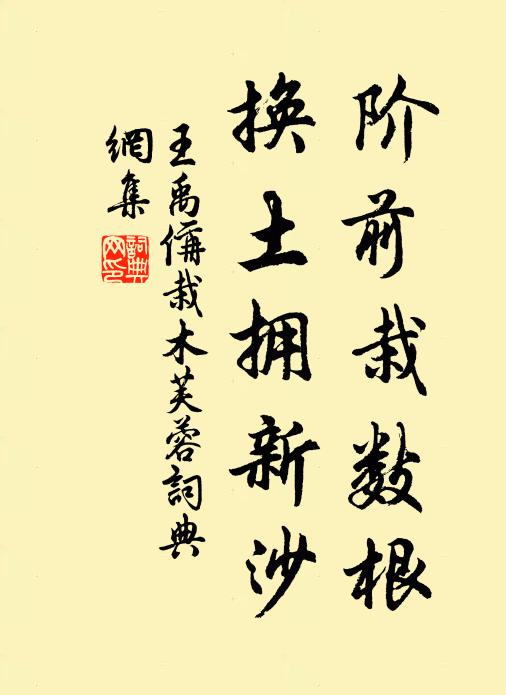 阶前栽数根
换土拥新沙
王禹偁栽木芙蓉詞典
網集
詞典网印